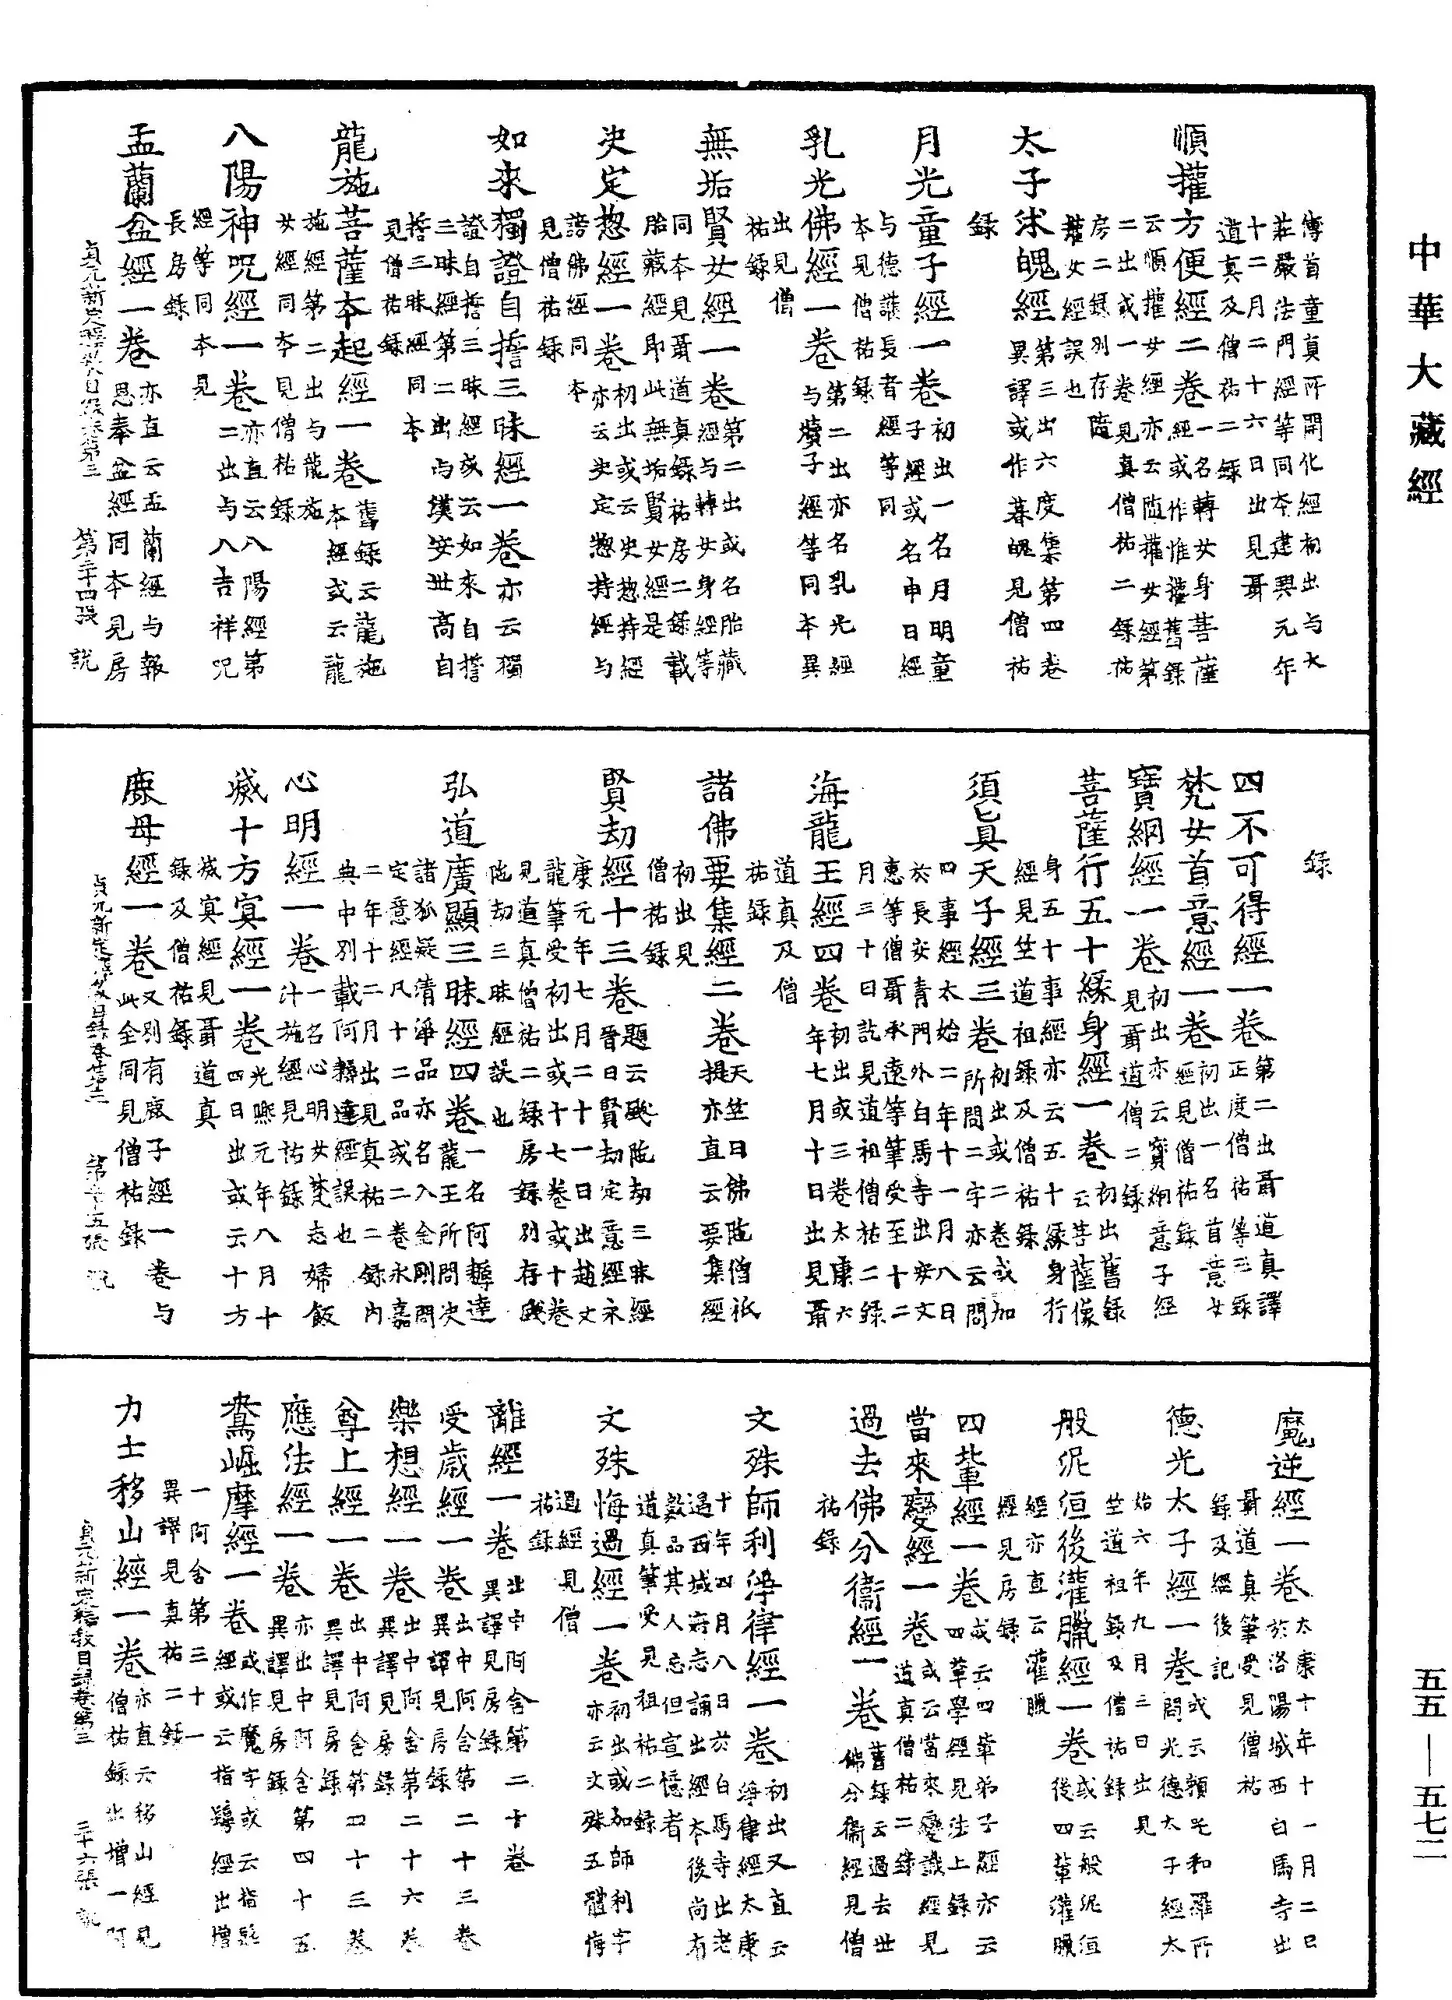 中華大藏經
傳首童真所開化經初出与大
莊嚴法門經等同本建興元年
十二月二十六日出見聶
道真及僧祐二錄
順權方便經二卷一名轉女身菩薩經或作惟權舊錄
云順權女經亦云隨權女經第二出或一卷見真僧祐二錄祐
房二錄別存隨權女經誤也
太子沐魄經第三出六度集第四卷異譯或作暮魄見僧祐
錄
月光童子經一卷初出一名月明童子經或名申日經
与德護長者經等同本見僧祐錄
乳光佛經一卷第二出亦名乳光經与犢子經等同本異
出見僧祐錄
無垢賢女經一卷第二出或名胎藏經与轉女身經等
同本見聶道真錄祐房二錄載胎藏經即此無垢賢女經是
決定惣經一卷初出或云決惣持經亦云決定惣持經与
謗佛經同本見僧祐錄
如來獨證自誓三昧經一卷亦云獨
證自誓三昧經或云如來自誓三昧經第二出与漢安世高自
誓三昧經同本見僧祐錄
龍施菩薩本起經一卷舊錄云龍施本經或云龍
施經第二出与龍施女經同本見僧祐錄
八陽神呪經一卷亦直云八陽經第二出与八吉祥呪
經等同本見長房錄
盂蘭盆經一卷亦直云盂蘭經与報恩奉盆經同本見房
貞元新定釋教目錄卷第三 第三十四張 說
錄
四不可得經一卷第二出聶道真譯正度僧祐等三錄
梵女首意經一卷初出一名首意女經見僧祐錄
寶網經一卷初出亦云寶網意子經見聶道僧二錄
菩薩行五十緣身經一卷初出舊錄云菩薩像
身五十事經亦云五十緣身行經見竺道祖錄及僧祐錄
須真天子經三卷初出或二卷或加所問二字亦云問
四事經太始二年十一月八日於長安青門外白馬寺出安文
惠等僧聶承遠等筆受至十二月三十日訖見道祖僧祐二錄
海龍王經四卷初出或三卷太康六年七月十日出見聶
道真及僧祐錄
諸佛要集經二卷天竺曰佛陁僧祇提亦直云要集經
初出見僧祐錄
賢劫經十三卷題云颰陁劫三昧經晉曰賢劫定意經永
康元年七月二十一日出趙文龍筆受初出或十七卷或十卷
見道真僧祐二錄房錄別存颰陁劫三昧經誤也
弘道廣顯三昧經四卷一名阿耨達龍王所問決
諸狐疑清淨品亦名入金剛問定意經凡十二品或二卷永嘉
二年十二月出見真祐二錄內典中別載阿耨達經誤也
心明經一卷一名心明女梵志婦飯汁施經見祐錄
滅十方冥經一卷光熙元年八月十四日出或云十方
滅冥經見聶道真錄及僧祐錄
鹿母經一卷又別有鹿子經一卷与此全同見僧祐錄
貞元新定釋教目錄卷第三 第三十五張 說
魔逆經一卷太康十年十一月二日於洛陽城西白馬寺出
聶道真筆受見僧祐錄及經後記
德光太子經一卷或云賴吒和羅所問光德太子經太
始六年九月三日出見竺道祖錄及僧祐錄
般泥洹後灌臘經一卷或云般泥洹後四輩灌臘
經亦直云灌臘經見房錄
四輩經一卷或云四輩弟子經亦云四輩學經見法上錄
當來變經一卷或云當來變識經見道真僧祐二錄
過去佛分衛經一卷舊錄云過去世佛分衛經見僧
祐錄
文殊師利淨律經一卷初出又直云淨律經太康
十年四月八日於白馬寺出老過西域寂志誦出經本後尚有
數品其人忘但宣憶者道真筆受見祖祐二錄
文殊悔過經一卷初出或加師利字亦云文殊五體悔
過經見僧祐錄
離經一卷出中阿含第二十卷異譯見房錄
受歲經一卷出中阿含第二十三卷異譯見房錄
樂想經一卷出中阿含第二十六卷異譯見房錄
尊上經一卷出中阿含第四十三卷異譯見房錄
應法經一卷亦出中阿含第四十五異譯見房錄
鴦崛摩經一卷或作魔字或云指髻經或云指鬘經出增
一阿含第三十一異譯見真祐二錄
力士移山經一卷亦直云移山經見僧祐錄出增一阿
貞元新定釋教目錄卷第三 三十六張 說
五五—五七二